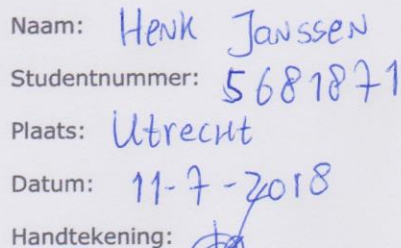 Naam: Henk Janssen
Studentnummer: 5681871
Plaats: Utrecht
Datum: 11-7-2018
Handtekening: